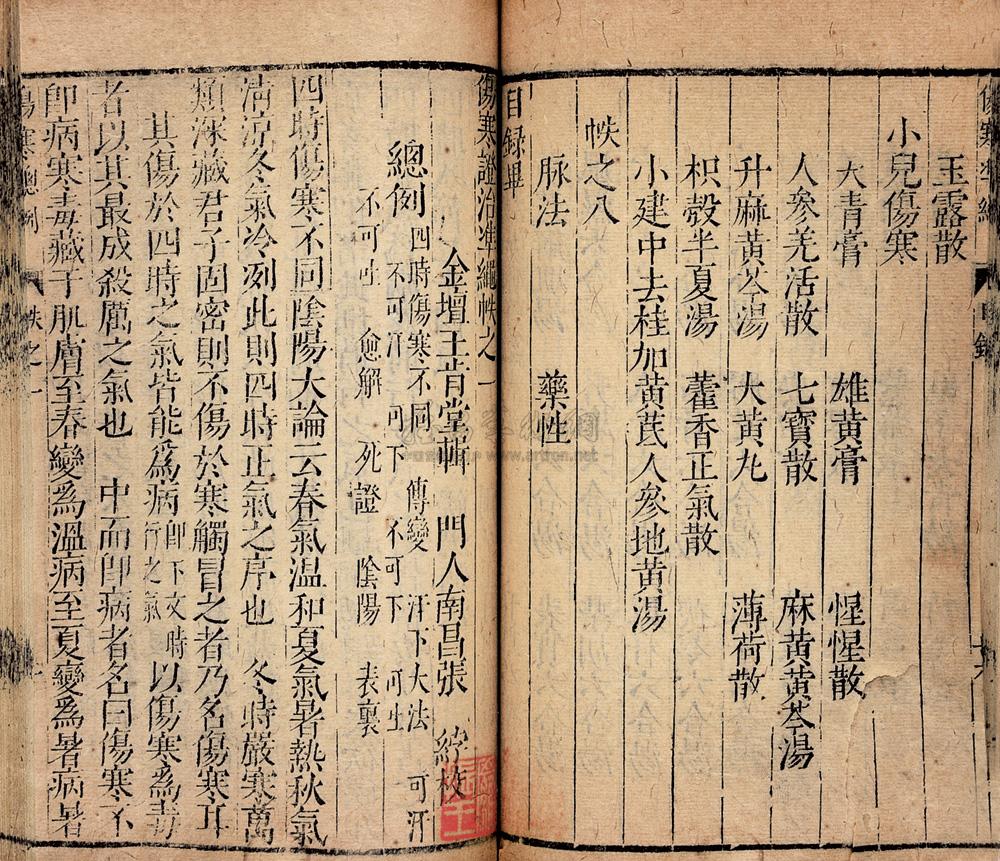 傷寒准繩 目錄
玉露散
小兒傷寒
大青膏 雄黃膏 惺惺散
人參羌活散 七寶散 麻黃黃芩湯
升麻黃芩湯 大黃丸 薄荷散
枳殼半夏湯 藿香正氣散
小建中去桂加黃芪人參地黃湯
帙之八
脉法 藥性
目錄畢
傷寒證治准繩帙之一
金壇王肯堂輯 門人南昌張 校
總例 四時傷寒不同 傳變 汗下大法 可汗
不可汗 可下 不可下 可吐
不可吐 愈解 死證 陰陽 表裏
四時傷寒不同陰陽大論云春氣温和夏氣暑熱秋氣
清涼冬氣冷冽此則四時正氣之序也 冬時嚴寒萬
類深藏君子固密則不傷於寒觸冒之者乃名傷寒耳
其傷於四時之氣皆能爲病即下文時行之氣以傷寒爲毒
者以其最成殺厲之氣也 中而即病者名曰傷寒不
即病寒毒藏于肌膚至春變爲溫病至夏變爲暑病暑
傷寒總例 帙之一
www.artron.net